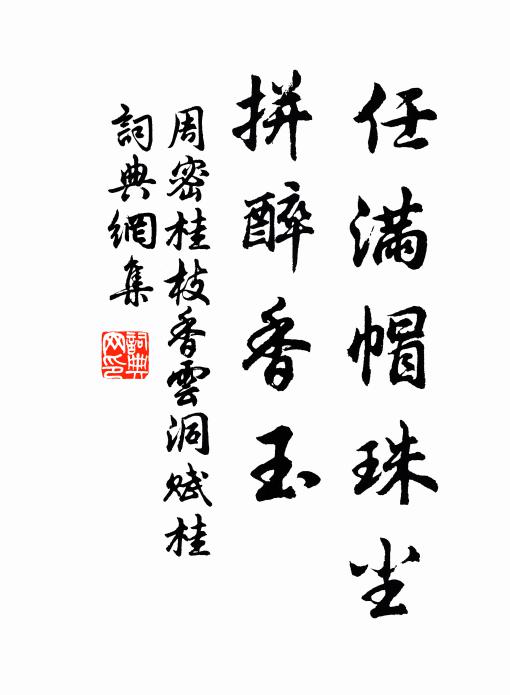 任滿帽珠尘
拼醉香玉
周密桂枝香雲洞賦桂
詞典網集
詞典
网印